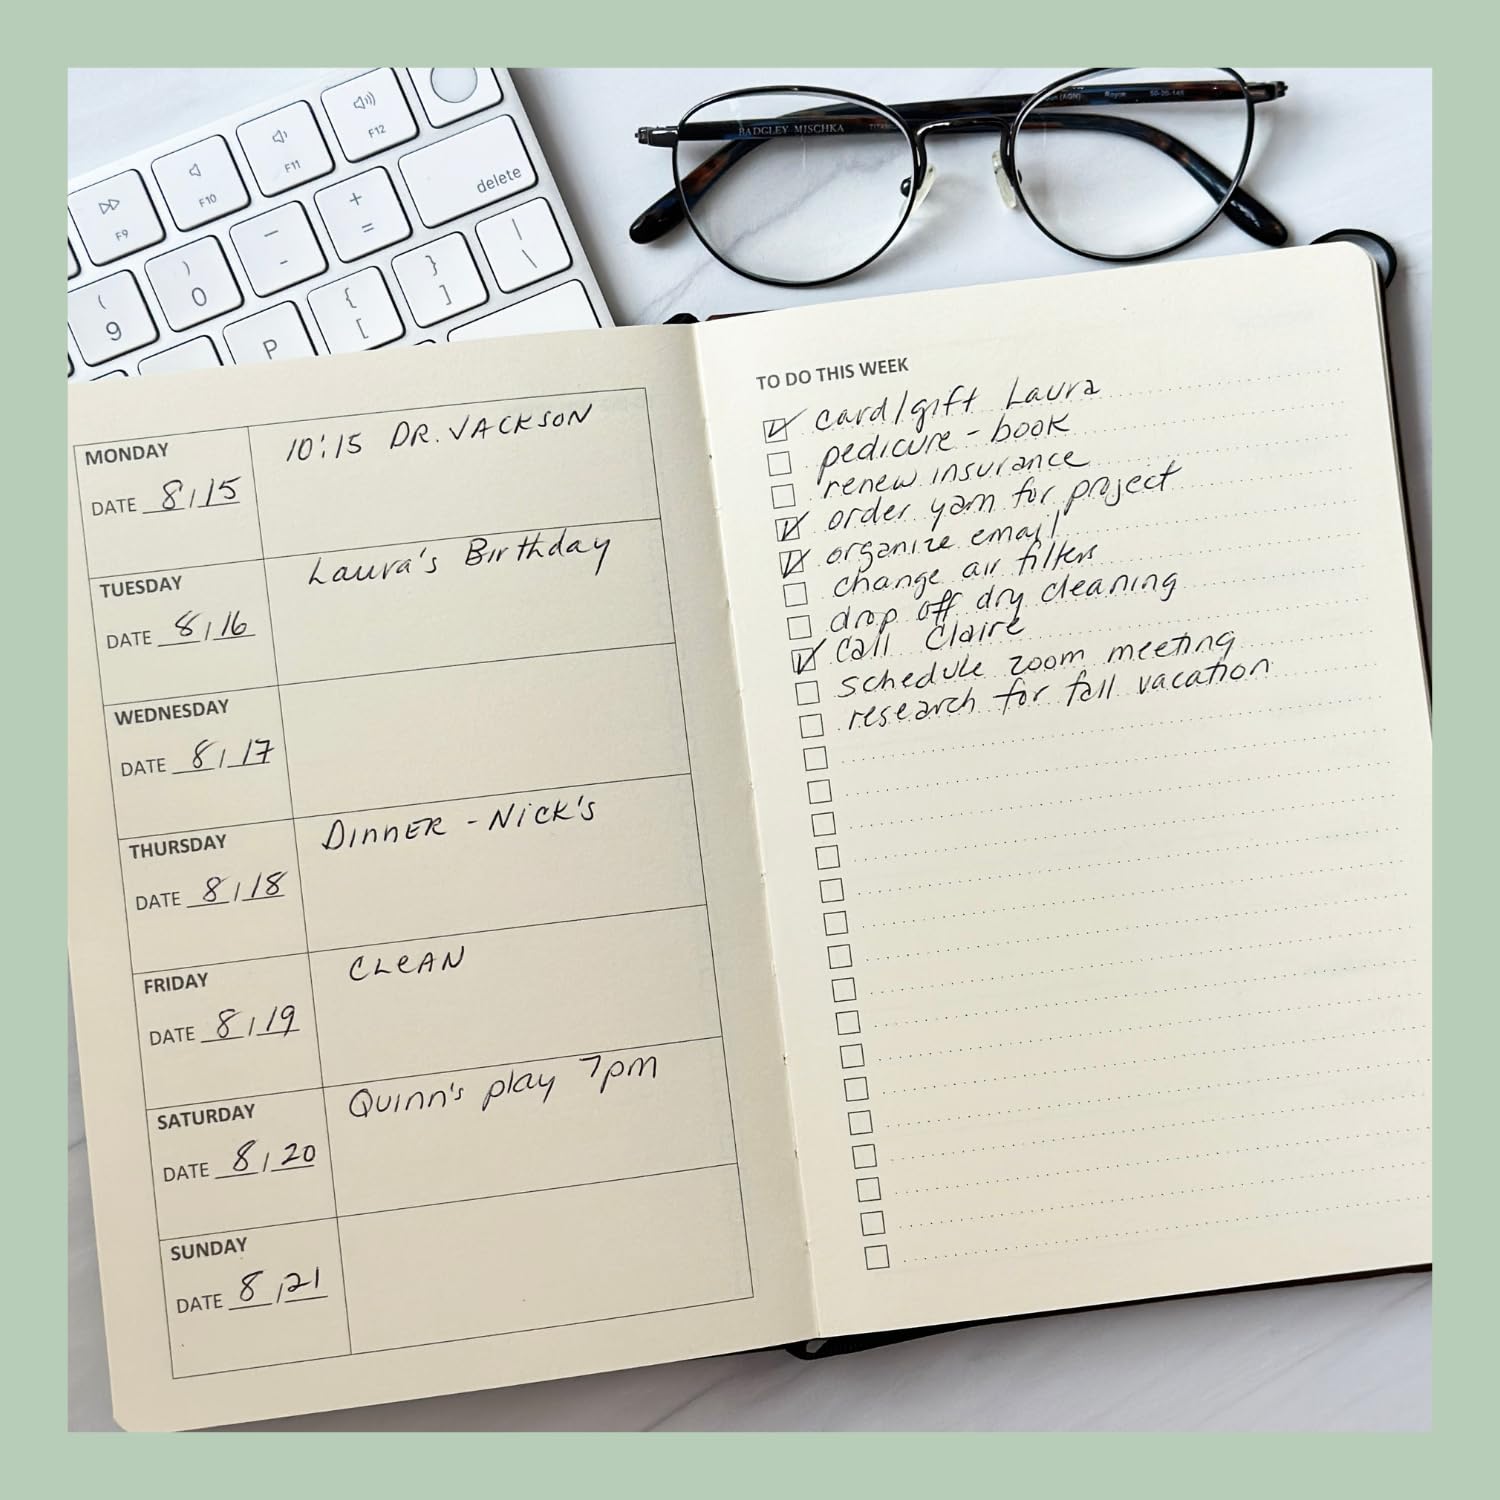 F9
F10
F11
F12
delete
+
=
—
-
(
9
)
0
P
{
[
}
]
|
\
BADGLEY MISCHKA
50-20-145
MONDAY
DATE 8/15
10:15 DR. JACKSON
TUESDAY
DATE 8/16
Laura's Birthday
WEDNESDAY
DATE 8/17
THURSDAY
DATE 8/18
DINNER - NICK'S
FRIDAY
DATE 8/19
CLEAN
SATURDAY
DATE 8/20
Quinn's play 7pm
SUNDAY
DATE 8/21
TO DO THIS WEEK
card/gift Laura
pedicure - book
renew insurance
order yarn for project
organize email
change air filters
drop off dry cleaning
call Claire
schedule zoom meeting
research for fall vacation